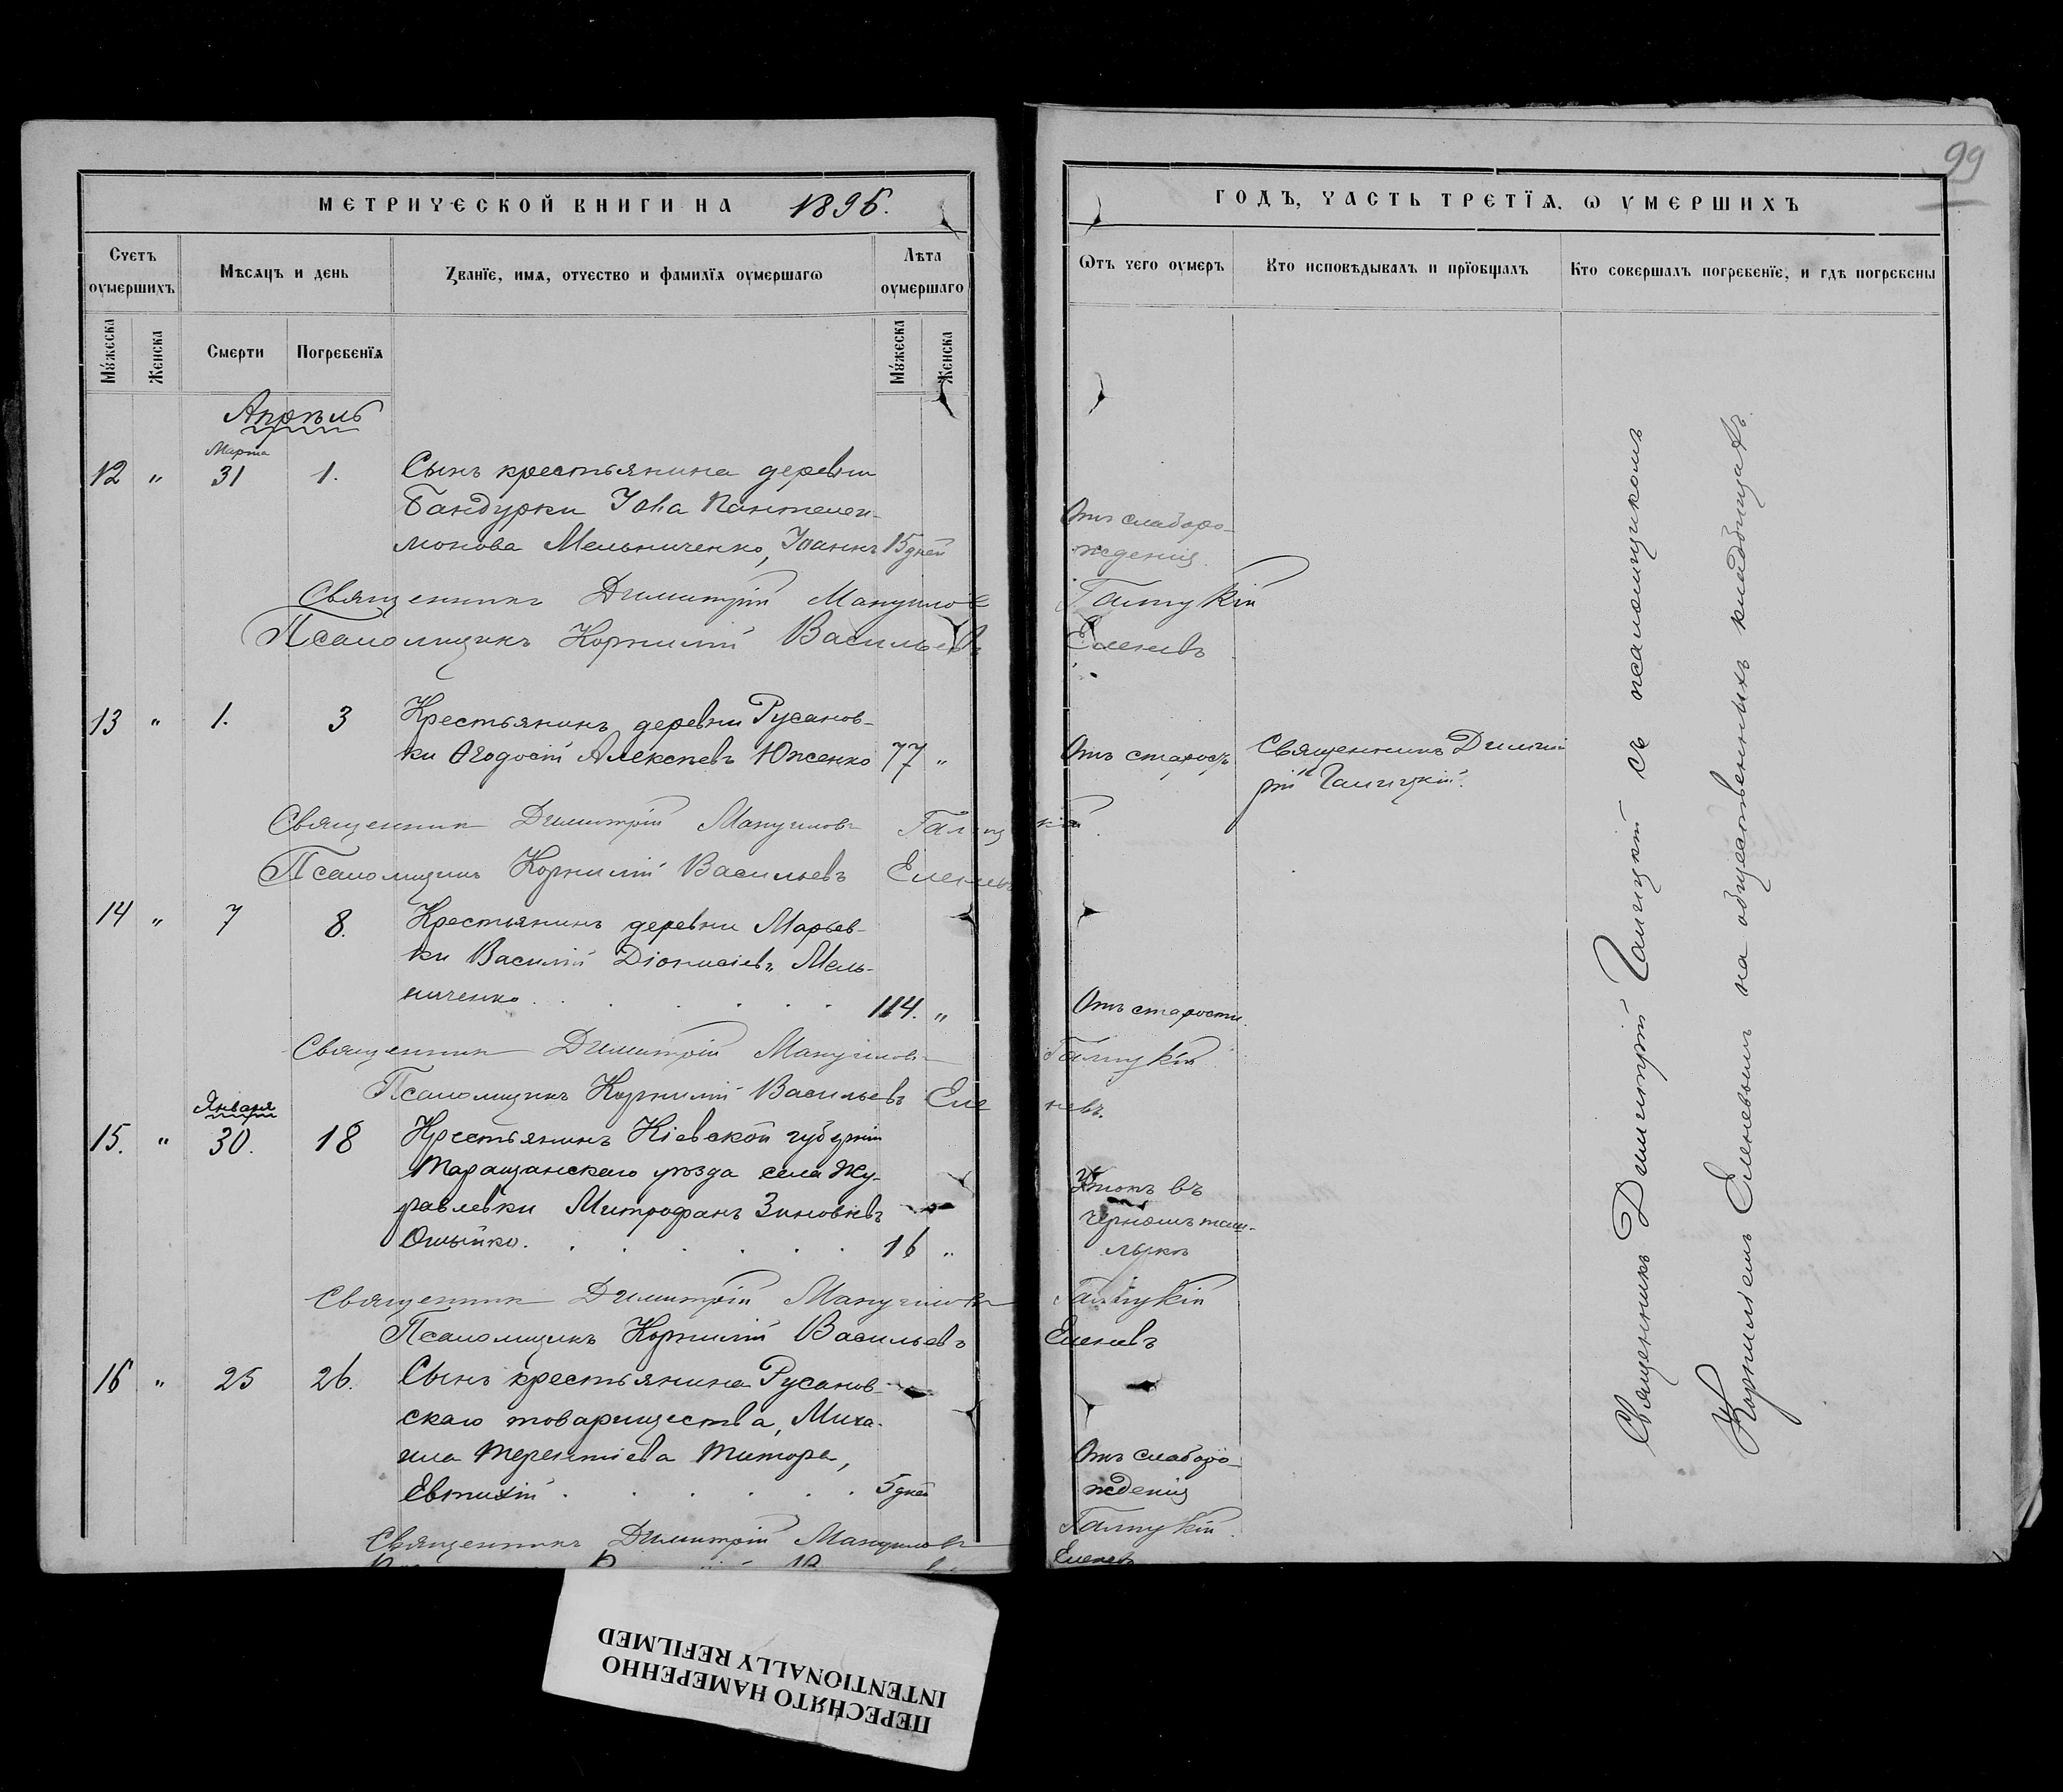 МЕТРИЧЕСКОЙ КНИГИ НА 1896.
Счетъ оумершихъ
Мѣсяцъ и день
Званїе, имя, отчество и фамилїя оумершагѡ
Лѣта оумершаго
Мꙋжеска
Женска
Смерти
Погребенїя
Мꙋжеска
Женска
Апрѣль
Марта
12 " 31 1. Сынъ крестьянина деревни
Бандурки Іова Пантелеи-
монова Мельниченко, Іоаннъ 15 дней
Священникъ Димитрій Мануилов
Псаломщикъ Корнилій Васильевъ
13 " 1. 3 Крестьянинъ деревни Русанов-
ки Ѳеодосій Алексѣевъ Юженко 77 "
Священник Димитрій Мануиловъ Галицкій
Псаломщикъ Корнилій Васильевъ Еленевъ
14 " 7 8. Крестьянинъ деревни Марьев-
ки Василій Діонисіевъ Мель-
ниченко 114. "
Священник Димитрій Мануилов
Псаломщикъ Корнилій Васильевъ Еле
Января
15. " 30. 18 Крестьянинъ Кіевской губерніи
Таращанскаго уѣзда села Жу-
равлевки Митрофанъ Зиновіевъ
16 "
Священник Димитрій Мануилов
Псаломщикъ Корнилій Васильевъ
16 " 25 26. Сынъ крестьянина Русанов-
скаго товарищества, Миха-
ила Терентіева Титора,
Евтихій 5 дней
Священникъ Димитрій Мануилов
99
ГОДЪ, ЧАСТЬ ТРЕТЇѦ, Ѡ УМЕРШИХЪ
Ѿтъ чего оумеръ
Кто исповѣдывалъ и прїобщалъ
Кто совершалъ погребенїе, и гдѣ погребены
Отъ слаборо-
жденія.
Галицкій
Еленевъ
Отъ старост. Священникъ Димит-
рій Галицкій.
Отъ старости.
Галицкій
невъ.
Утопъ въ
Черномъ таш-
лыкѣ
Галицкій
Еленевъ
Отъ слаборо-
жденія
Галицкій
Еленевъ
Священникъ Димитрій Галицкій съ псаломщикомъ
Корниліемъ Еленевымъ на общественныхъ кладбищахъ.
ПЕРЕСНЯТО НАМЕРЕННО
INTENTIONALLY REFILMED